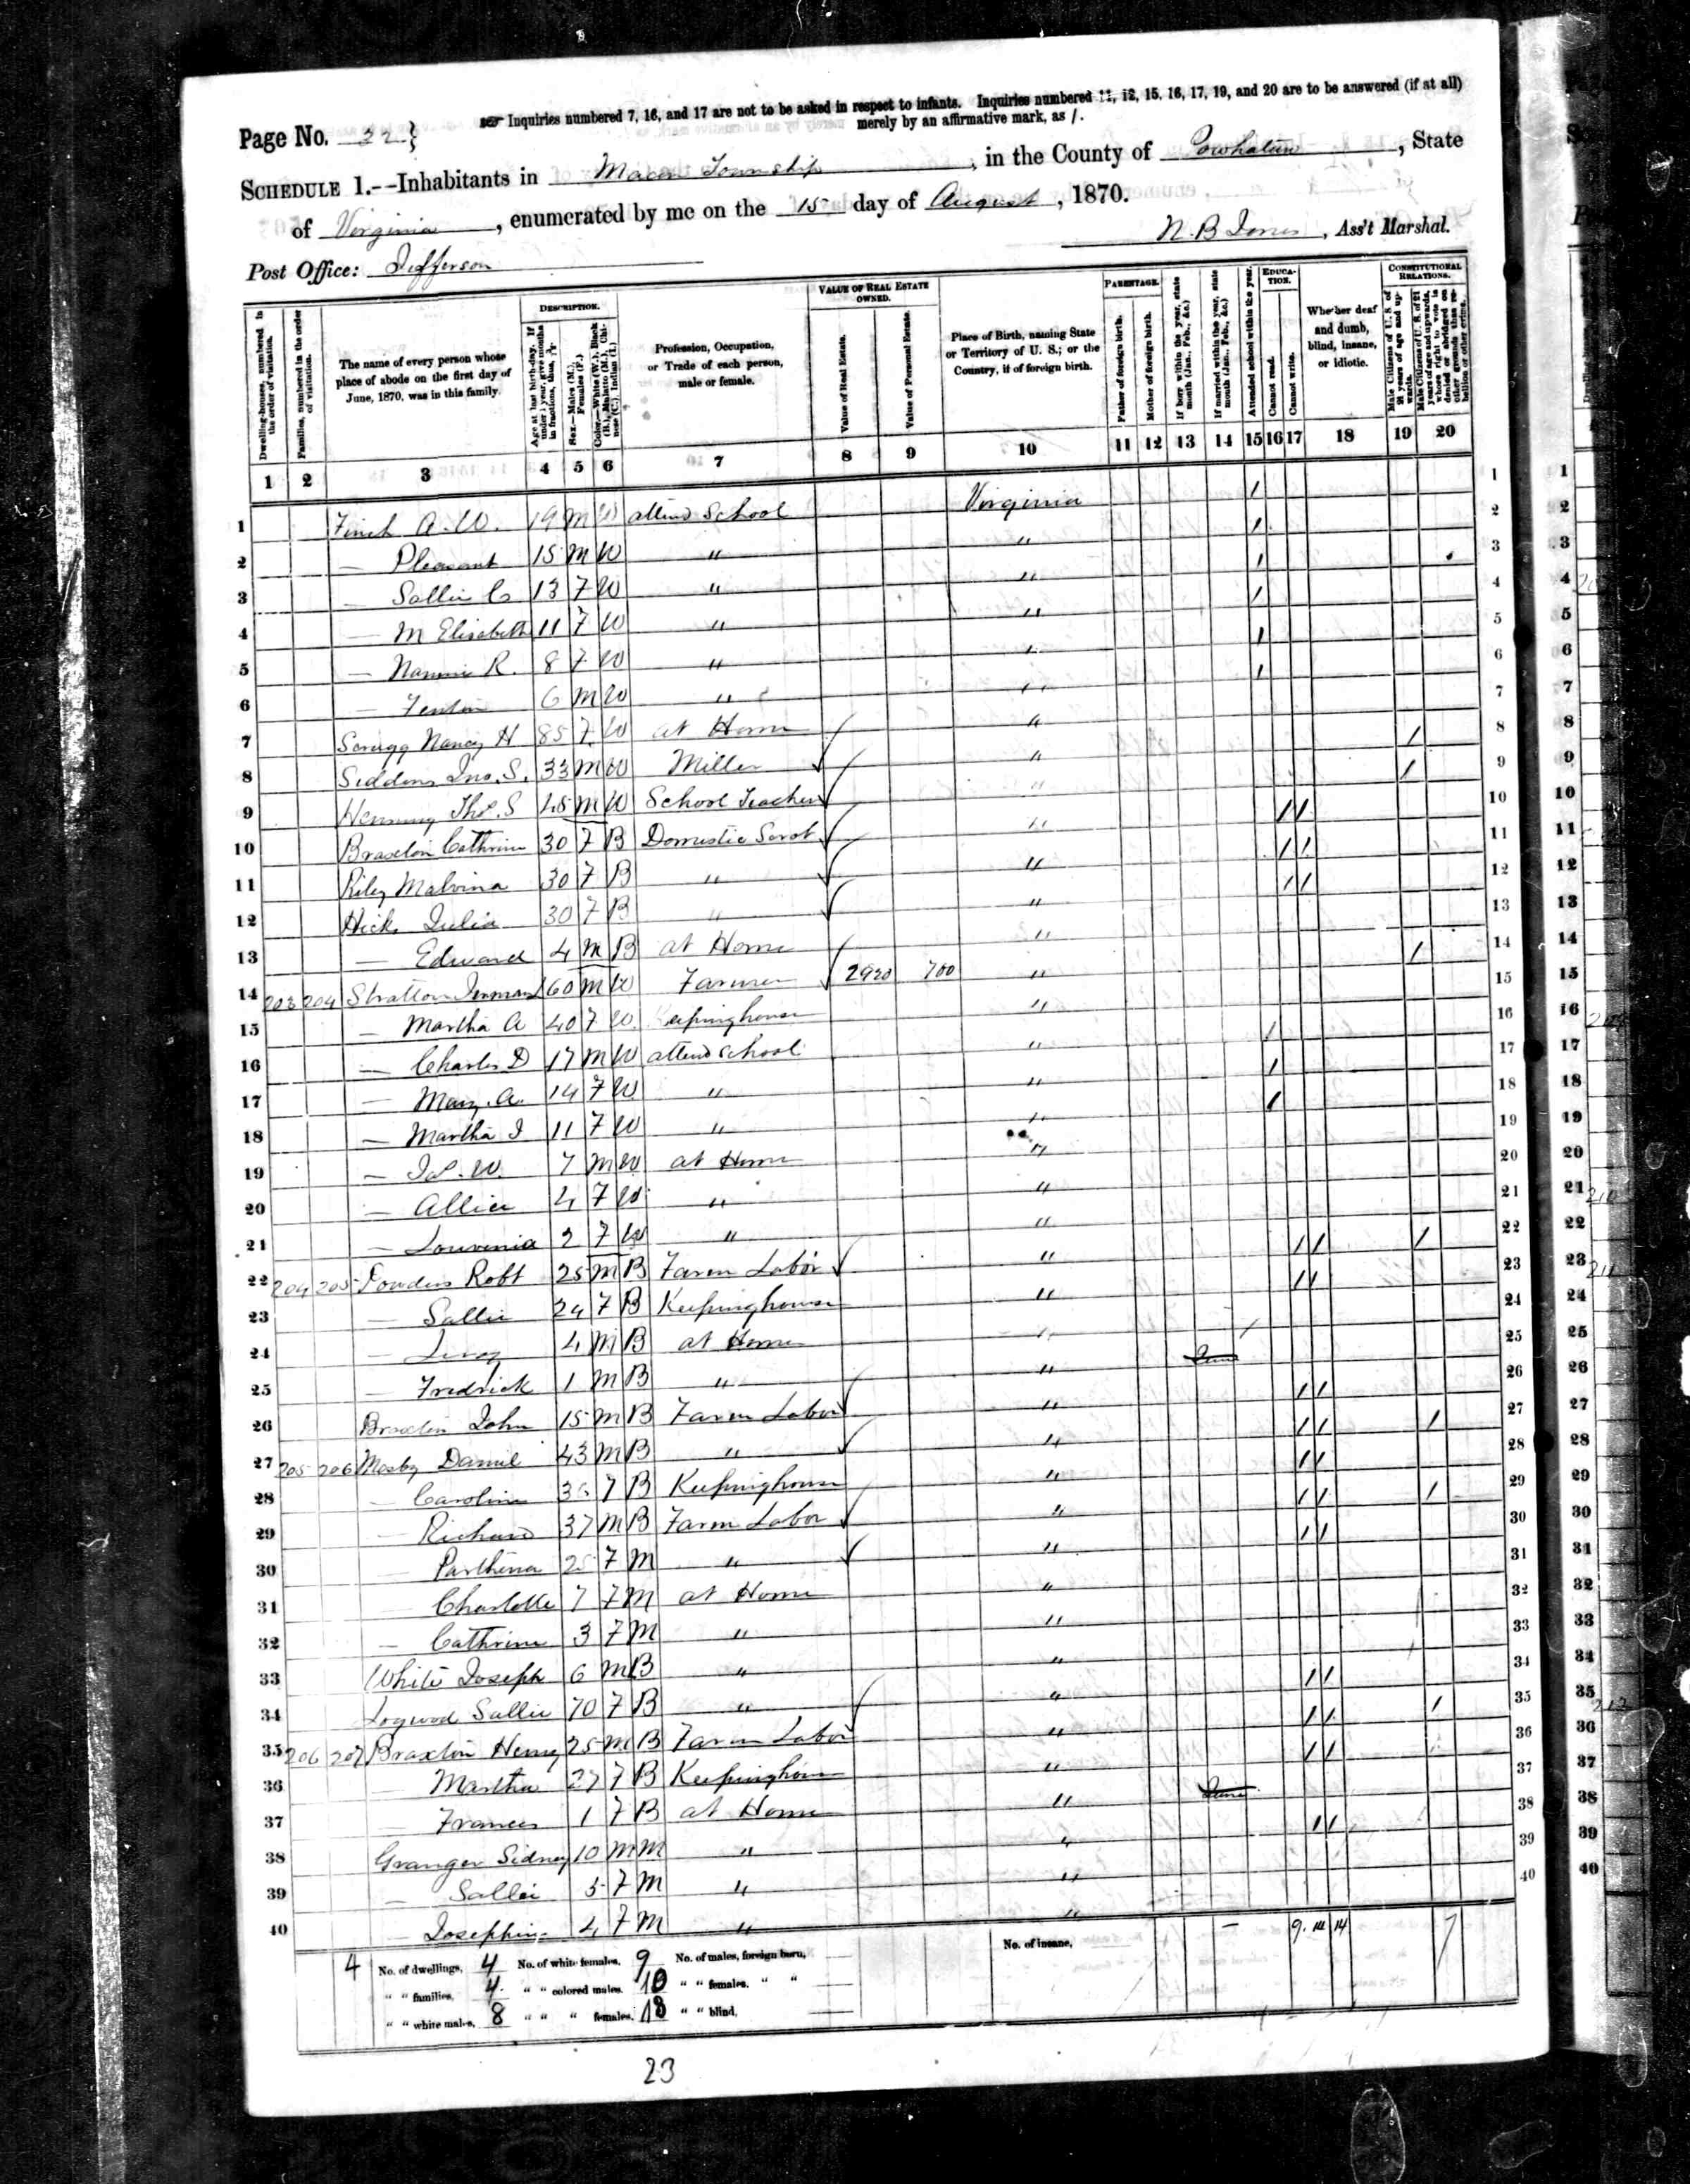 Page No. 32
Inquiries numbered 7, 16, and 17 are not to be asked in respect to infants. Inquiries numbered 11, 12, 15, 16, 17, 19, and 20 are to be answered (if at all) merely by an affirmative mark, as /.
SCHEDULE 1.--Inhabitants in Macon Township, in the County of Powhatan, State
of Virginia, enumerated by me on the 15 day of August, 1870.
Post Office: Jefferson
N. B Jones, Ass't Marshal.
Dwelling-houses, numbered in the order of visitation.
Families, numbered in the order of visitation.
The name of every person whose place of abode on the first day of June, 1870, was in this family.
DESCRIPTION.
Age at last birth-day. If under 1 year, give months in fractions, thus,
Sex.—Males (M.), Females (F.)
Color.—White (W.), Black (B.), Mulatto (M.), Chinese (C.), Indian (I.)
Profession, Occupation, or Trade of each person, male or female.
VALUE OF REAL ESTATE OWNED.
Value of Real Estate.
Value of Personal Estate.
Place of Birth, naming State or Territory of U. S.; or the Country, if of foreign birth.
PARENTAGE.
Father of foreign birth.
Mother of foreign birth.
If born within the year, state month (Jan., Feb., &c.)
If married within the year, state month (Jan., Feb., &c.)
Attended school within the year.
EDUCATION.
Cannot read.
Cannot write.
Whether deaf and dumb, blind, insane, or idiotic.
CONSTITUTIONAL RELATIONS.
Male Citizens of U. S. of 21 years of age and upwards.
Male Citizens of U. S. of 21 years of age and upwards, whose right to vote is denied or abridged on other grounds than rebellion or other crime.
1 2 3 4 5 6 7 8 9 10 11 12 13 14 15 16 17 18 19 20
1 Finch A. W. 19 M W attend School Virginia / 1
2 — Pleasant 15 M W " " / 2
3 — Sallie C 13 F W " " / 3
4 — M Elizabeth 11 F W " " / 4
5 — Nannie R. 8 F W " " / 5
6 — Fenton 6 M W " " / 6
7 Scrugg Nancy H 85 F W at Home " 7
8 Siddons Jno. S. 33 M W Miller " / 8
9 Henning Tho. S 45 M W School Teacher " / 9
10 Braxton Cathrine 30 F B Domestic Servt " / / 10
11 Riley Malvina 30 F B " " / / 11
12 Hicks Julia 30 F B " " / / 12
13 — Edward 4 M B at Home " 13
14 203 204 Stratton 60 M W Farmer 2920 700 " / 14
15 — Martha A 40 F W Keepinghouse " 15
16 — Charles D 17 M W attend school " / 16
17 — Mary A. 14 F W " " / 17
18 — Martha J 11 F W " " / 18
19 — Jas. W. 7 M W at Home " 19
20 — Allice 4 F W " " 20
21 — Louvenia 2 F W " " 21
22 204 205 Robt 25 M B Farm Labor " / / / 22
23 — Sallie 24 F B Keepinghouse " / / 23
24 — 4 M B at Home " 24
25 — Fredrick 1 M B " " June 25
26 Braxton John 15 M B Farm Labor " / / 26
27 205 206 Mosby Daniel 43 M B " " / / / 27
28 — Caroline F B Keepinghouse " / / 28
29 — Richard 37 M B Farm Labor " / / / 29
30 — Parthena 25 F M " " / / 30
31 — Charlotte 7 F M at Home " 31
32 — Cathrine 3 F M " " 32
33 White Joseph 6 M B " " 33
34 Logwood Sallie 70 F B " " / / 34
35 206 207 Braxton Henry 25 M B Farm Labor " / / / 35
36 — Martha 27 F B Keepinghouse " / / 36
37 — Frances 1 F B at Home " June 37
38 Granger Sidney 10 M M " " / / 38
39 — Sallie 5 F M " " 39
40 — Josephine 4 F M " " 40
4 No. of dwellings, 4 No. of white females, 9 No. of males, foreign born, No. of insane, 9. 14 14 7
" " families, 4. " " colored males, 10 " " females, " "
" " white males, 8 " " " females, 13 " " blind,
23